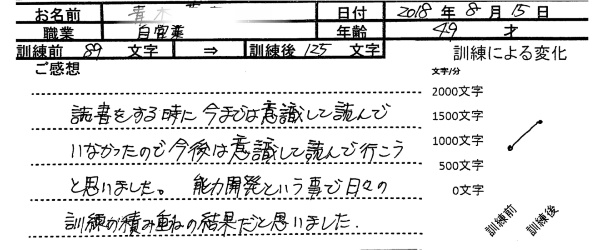 お名前 青木 日付 2018年8月15日
職業 自営業 年齢 49 才
訓練前 89 文字 ⇒ 訓練後 125 文字 訓練による変化
ご感想 文字/分
2000文字
1500文字
1000文字
500文字
0文字
訓練前 訓練後
読書をする時に今までは意識して読んで
いなかったので今後は意識して読んで行こう
と思いました。 能力開発という事で日々の
訓練が積み重ねの結果だと思いました.